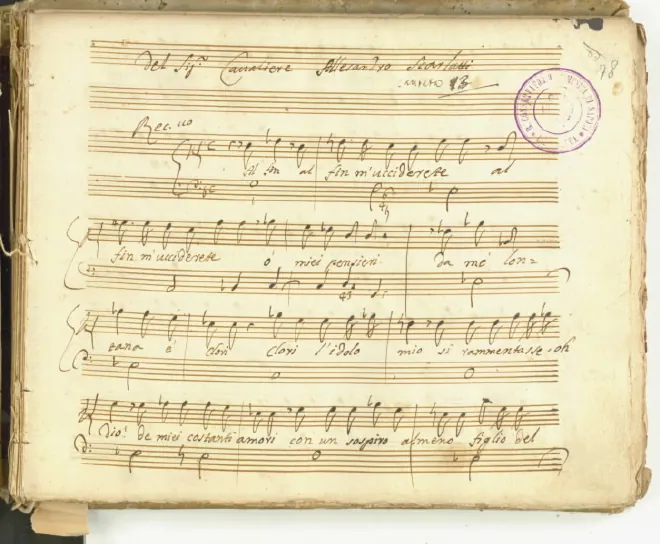 Del Sig.r Cavaliere Allesandro Scarlatti
13
78
R. CONSERVATORIO DI MUSICA DI NAPOLI
Rec.vo
al fin m'ucciderete al
fin m'ucciderete o miei pensieri da me lon=
tana è Clori Clori l'idolo mio si rammentasse oh
Dio! de miei costanti amori con un sospiro almeno figlio del